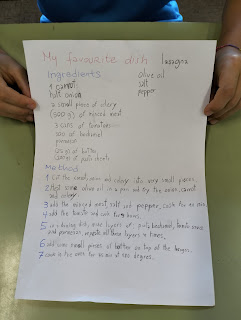 My favourite dish lasagna
Ingredients
4 carrots
half onion
2 small pieces of celery
(500 g) of minced meat
3 cans of tomatoes
500 of bechamel
parmesan
olive oil
salt
pepper
of butter
of pasta sheets
Method
1 cut the carrot, onion and celery into very small pieces.
2 Heat some olive oil in a pan and fry the onion, carrot
and celery
3 add the minced meat, salt and pepper, cook for
4 add the tomato and cook for
5 in a baking dish, make layers of: pasta, bechamel, tomato sauce
and parmesan, repeat all these layers 4 times,
6 add some small pieces of butter on top of the lasagna.
7 cook in the oven for 30 min at 180 degrees.